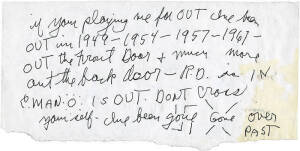 if you playing me for OUT I've been
OUT in 1949-1954-1957-1961-
OUT the front Door & much more
out the back door - R.D. is IN
E.MAN.O. IS OUT. DONT CROSS
yourself - I've been going Gone over
PAST